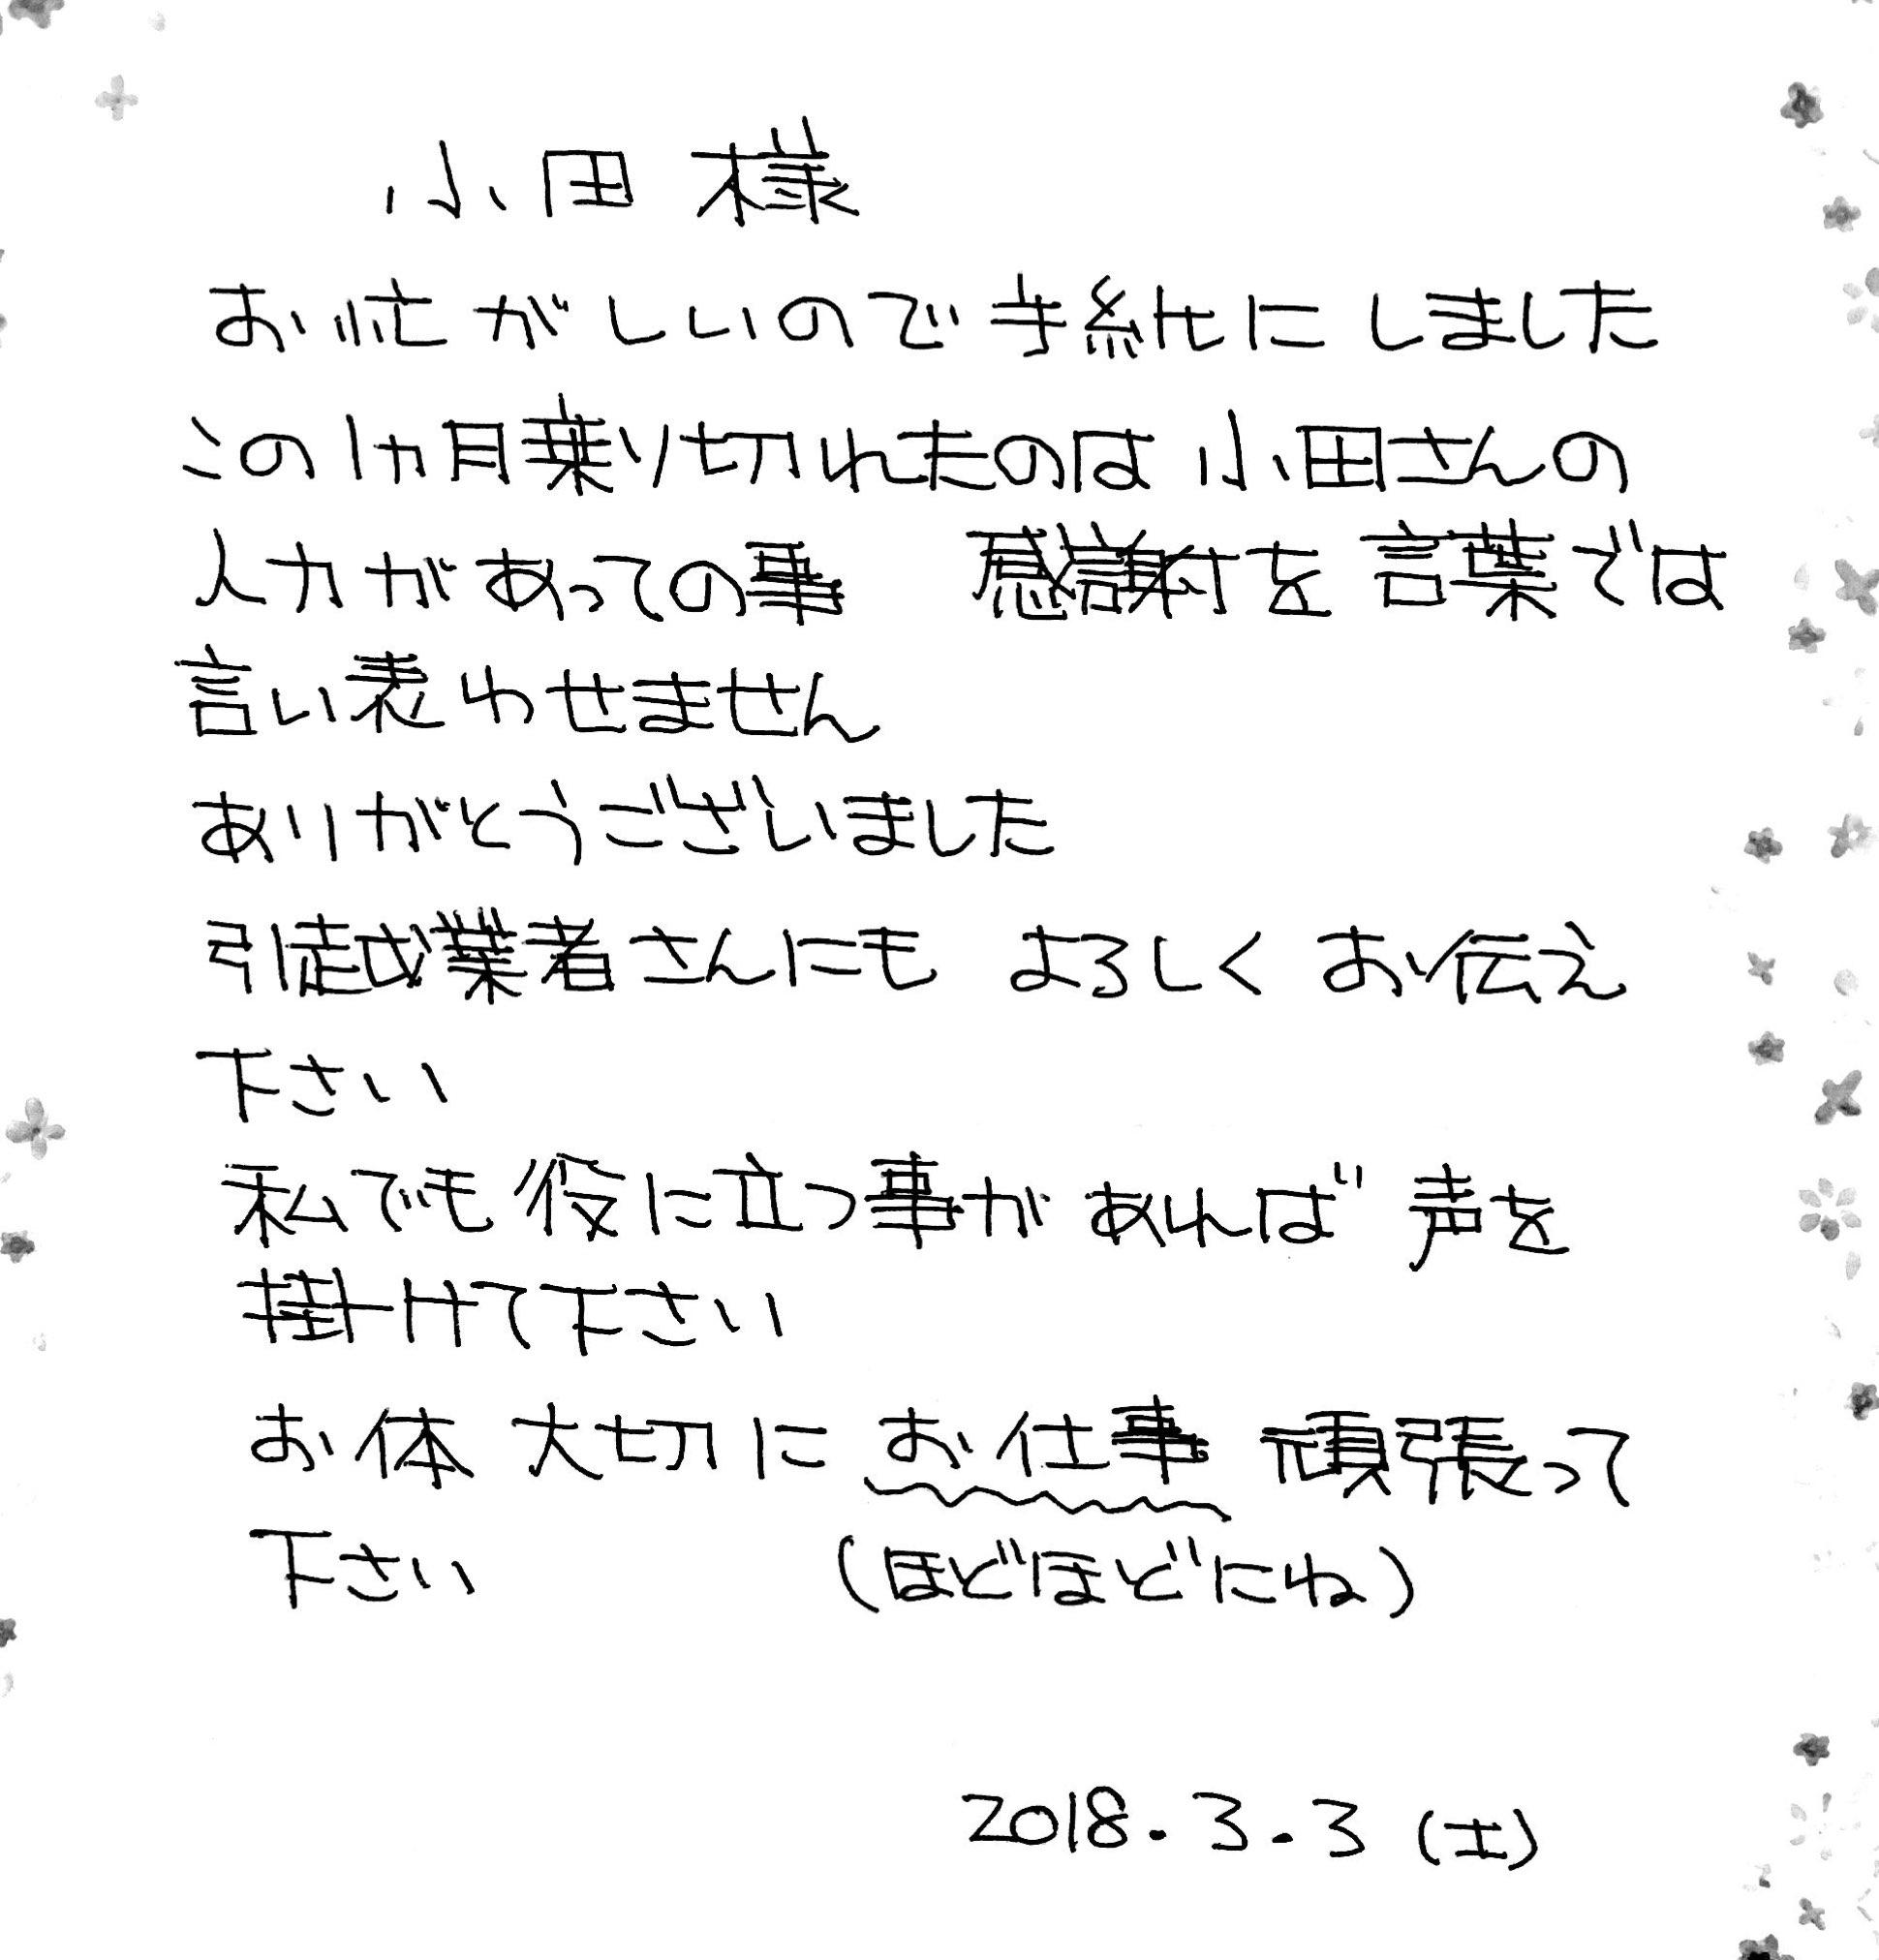 小田 様
お忙がしいので手紙にしました
この1カ月乗り切れたのは小田さんの
人力があっての事 感謝を言葉では
言い表わせません
ありがとうございました
引越業者さんにも よろしく お伝え
下さい
私でも役に立つ事があれば 声を
掛けて下さい
お体 大切に お仕事 頑張って
下さい (ほどほどにね)
2018.3.3(土)